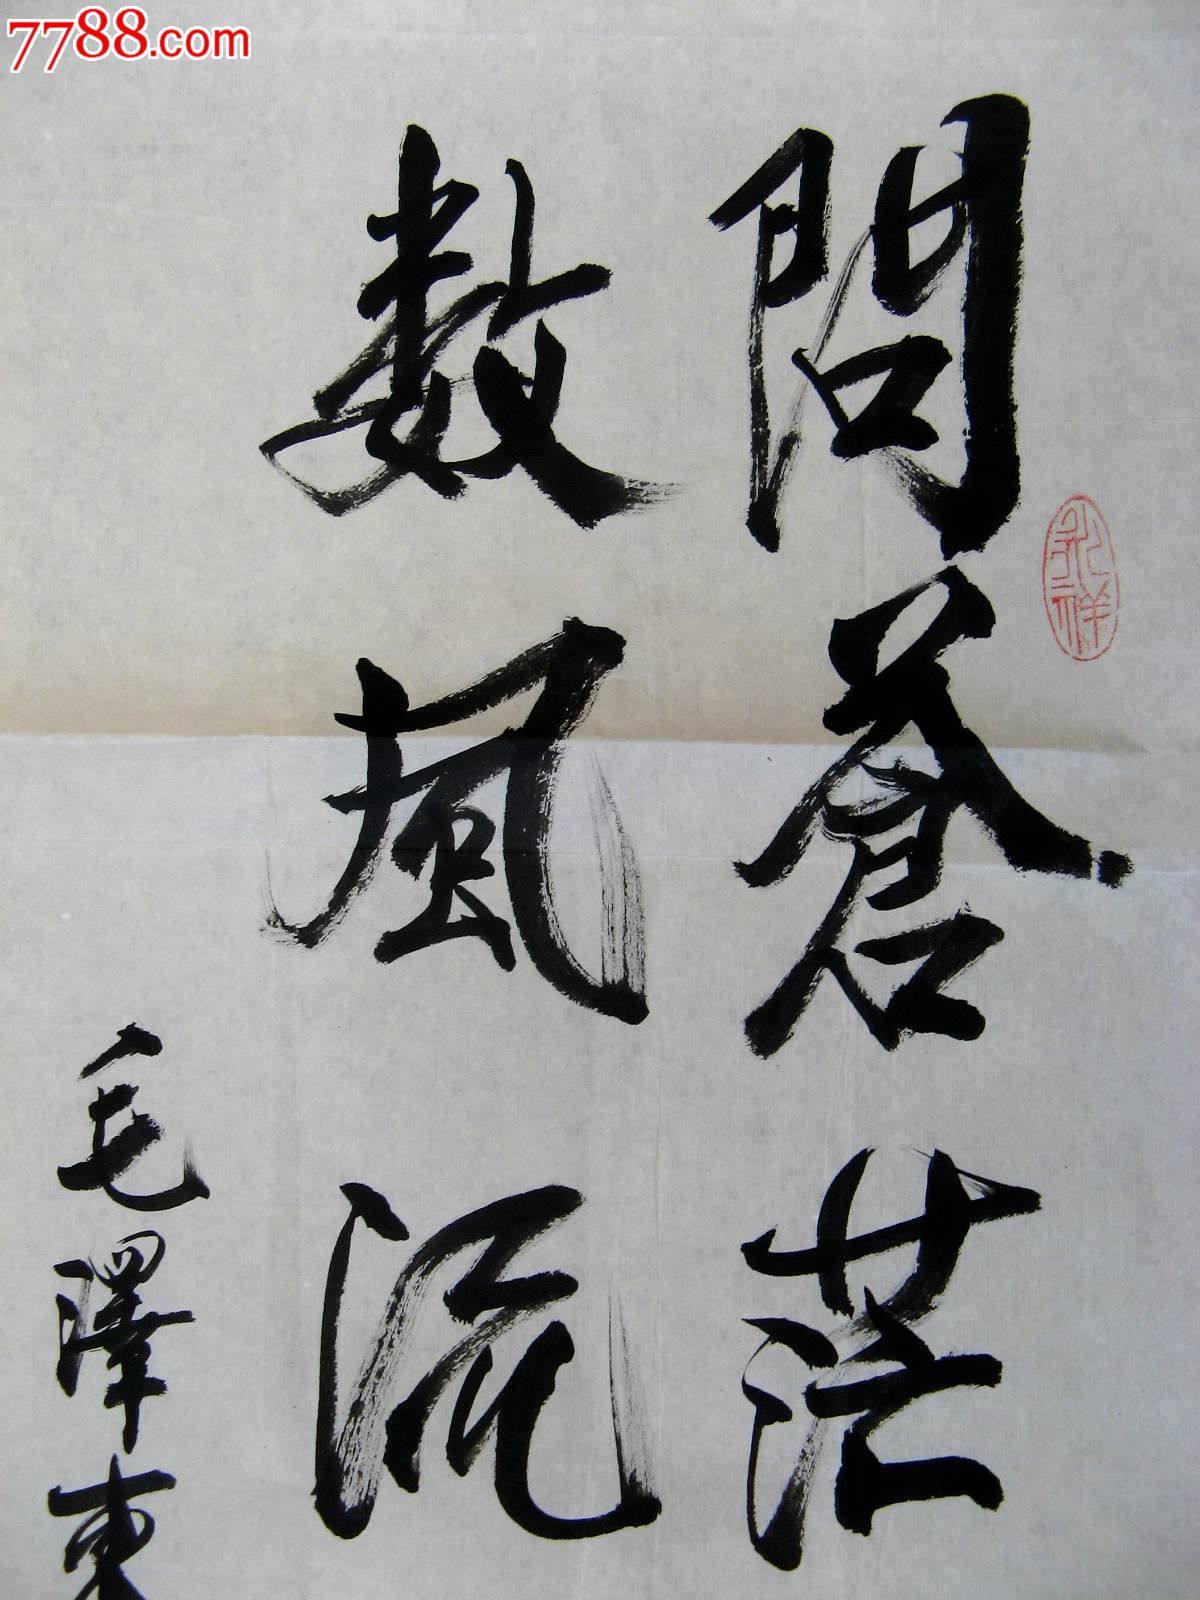 7788.com
問蒼茫
数風流
毛澤東